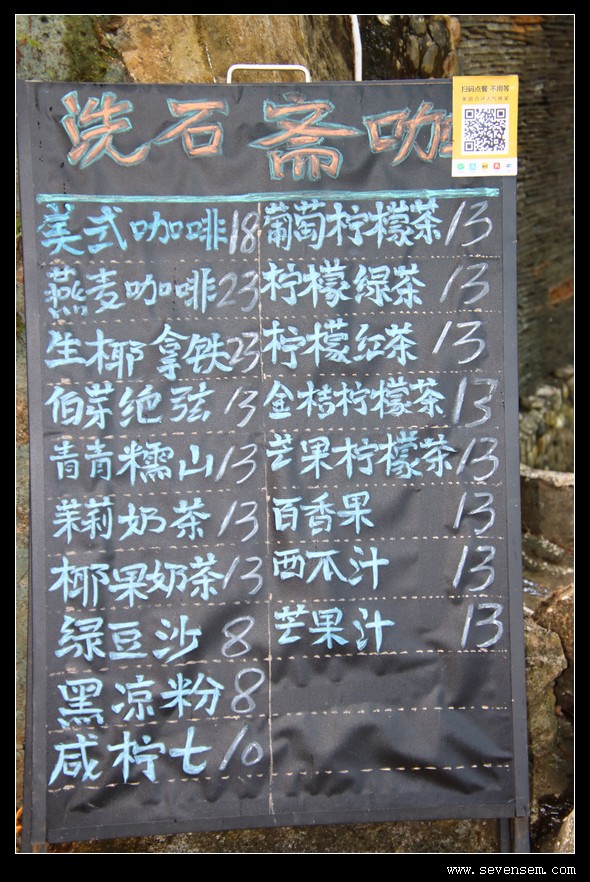 洗石斋咖
扫码点餐 不用等
美式咖啡18
燕麦咖啡23
生椰拿铁23
伯芽绝弦13
青青糯山13
茉莉奶茶13
椰果奶茶13
绿豆沙8
黑凉粉8
咸柠七10
葡萄柠檬茶13
柠檬绿茶13
柠檬红茶13
金桔柠檬茶13
芒果柠檬茶13
百香果13
西瓜汁13
芒果汁13
www.sevensem.com